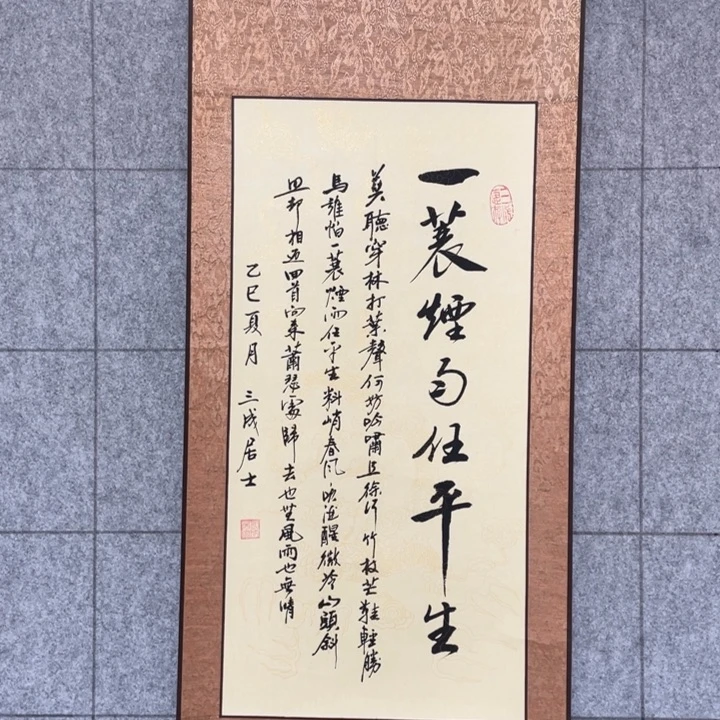 一蓑煙雨任平生
莫聽穿林打葉聲何妨吟嘯且徐行竹杖芒鞋輕勝
馬誰怕一蓑煙雨任平生料峭春風吹酒醒微冷山頭斜
照却相迎回首向來蕭瑟處歸去也無風雨也無晴
乙巳夏月 三成居士